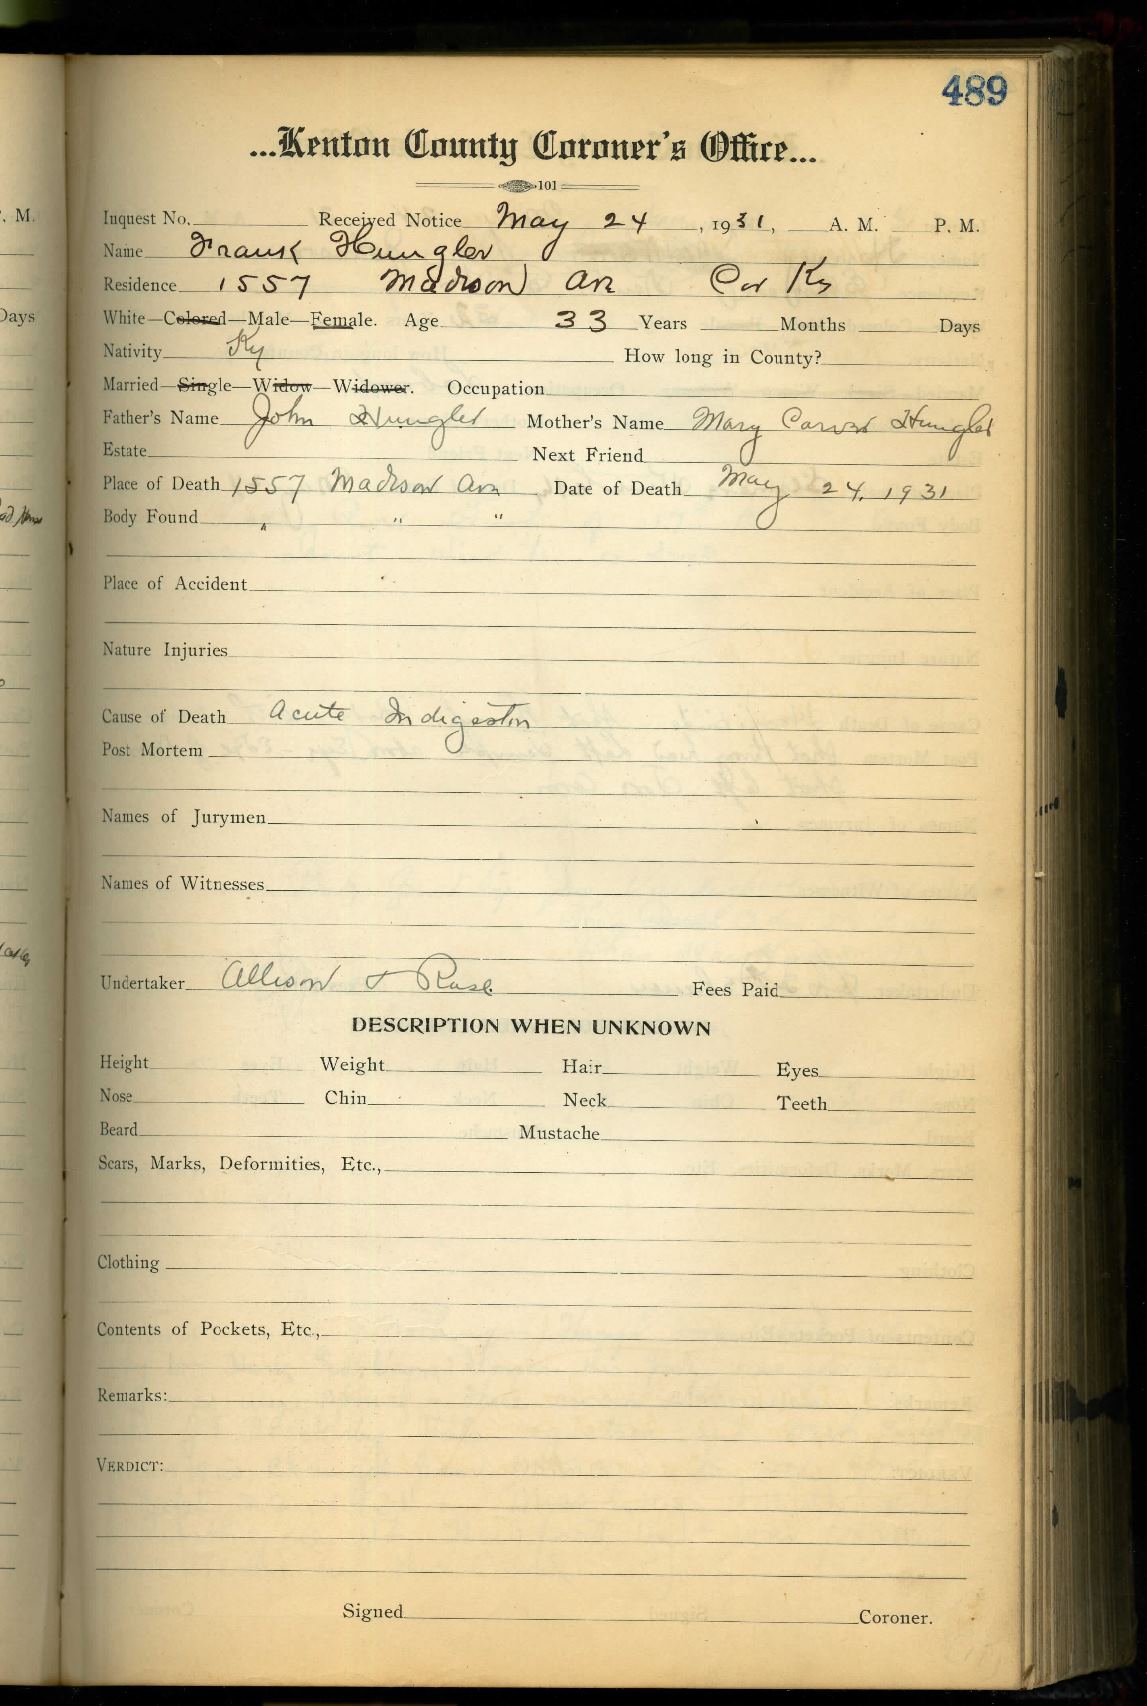 489
...Kenton County Coroner's Office...
101
Inquest No. Received Notice May 24, 1931, A. M. P. M.
Name Frank Hungler
Residence 1557 Madison Av Cov Ky
White—Colored—Male—Female. Age 33 Years Months Days
Nativity Ky How long in County?
Married—Single—Widow—Widower. Occupation
Father's Name John Hungler Mother's Name Mary Carver Hungler
Estate Next Friend
Place of Death 1557 Madison Av Date of Death May 24, 1931
Body Found " " "
Place of Accident
Nature Injuries
Cause of Death Acute Indigestion
Post Mortem
Names of Jurymen
Names of Witnesses
Undertaker Allison & Rose Fees Paid
DESCRIPTION WHEN UNKNOWN
Height Weight Hair Eyes
Nose Chin Neck Teeth
Beard Mustache
Scars, Marks, Deformities, Etc.,
Clothing
Contents of Pockets, Etc.,
Remarks:
VERDICT:
Signed Coroner.